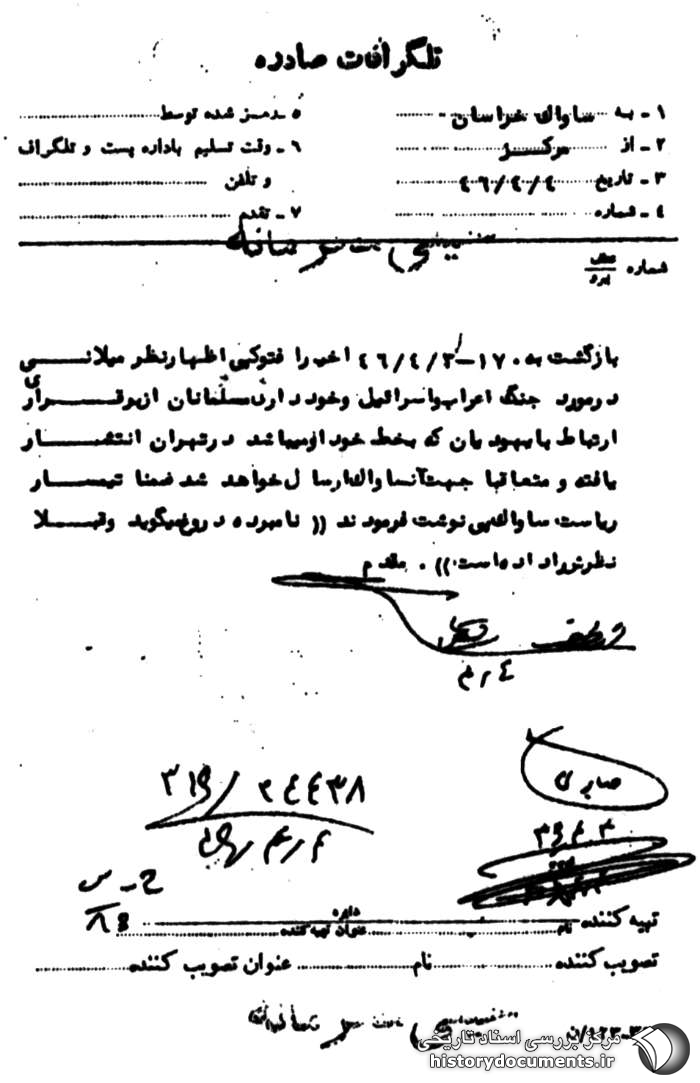 تلگرافات صادره
۱ـ به ساواک خراسان
۲ـ از مرکز
۳ـ تاریخ ٤٦/٤/٤
٤ـ شماره
۵ـ رمز شده توسط
٦ـ وقت تسلیم باداره پست و تلگراف
و تلفن
۷ـ تقدم
شماره
بازگشت به ۱۷۰۰ـ۴٦/٤/۳ اخیرا فتوکپی اظهارنظر میلانی
درمورد جنگ اعراب واسرائیل وخودداری مسلمانان ازبرقراری
ارتباط با یهودیان که بخط خود اومیباشد درتهران انتشار
یافته و متعاقبا جهت آنساواک ارسال خواهد شد ضمنا تیمسار
ریاست ساواک پی نوشت فرمودند (( نامبرده دروغ میگوید وقبلا
نظرش را داده است )) . مقدم
٤ر۴
صابری
۳۱۶/۲٤٤۳۸
دایره
تهیه کننده
نام
عنوان تهیه کننده
تصویب کننده
نام
عنوان تصویب کننده
مرکز بررسی اسناد تاریخی
historydocuments.ir